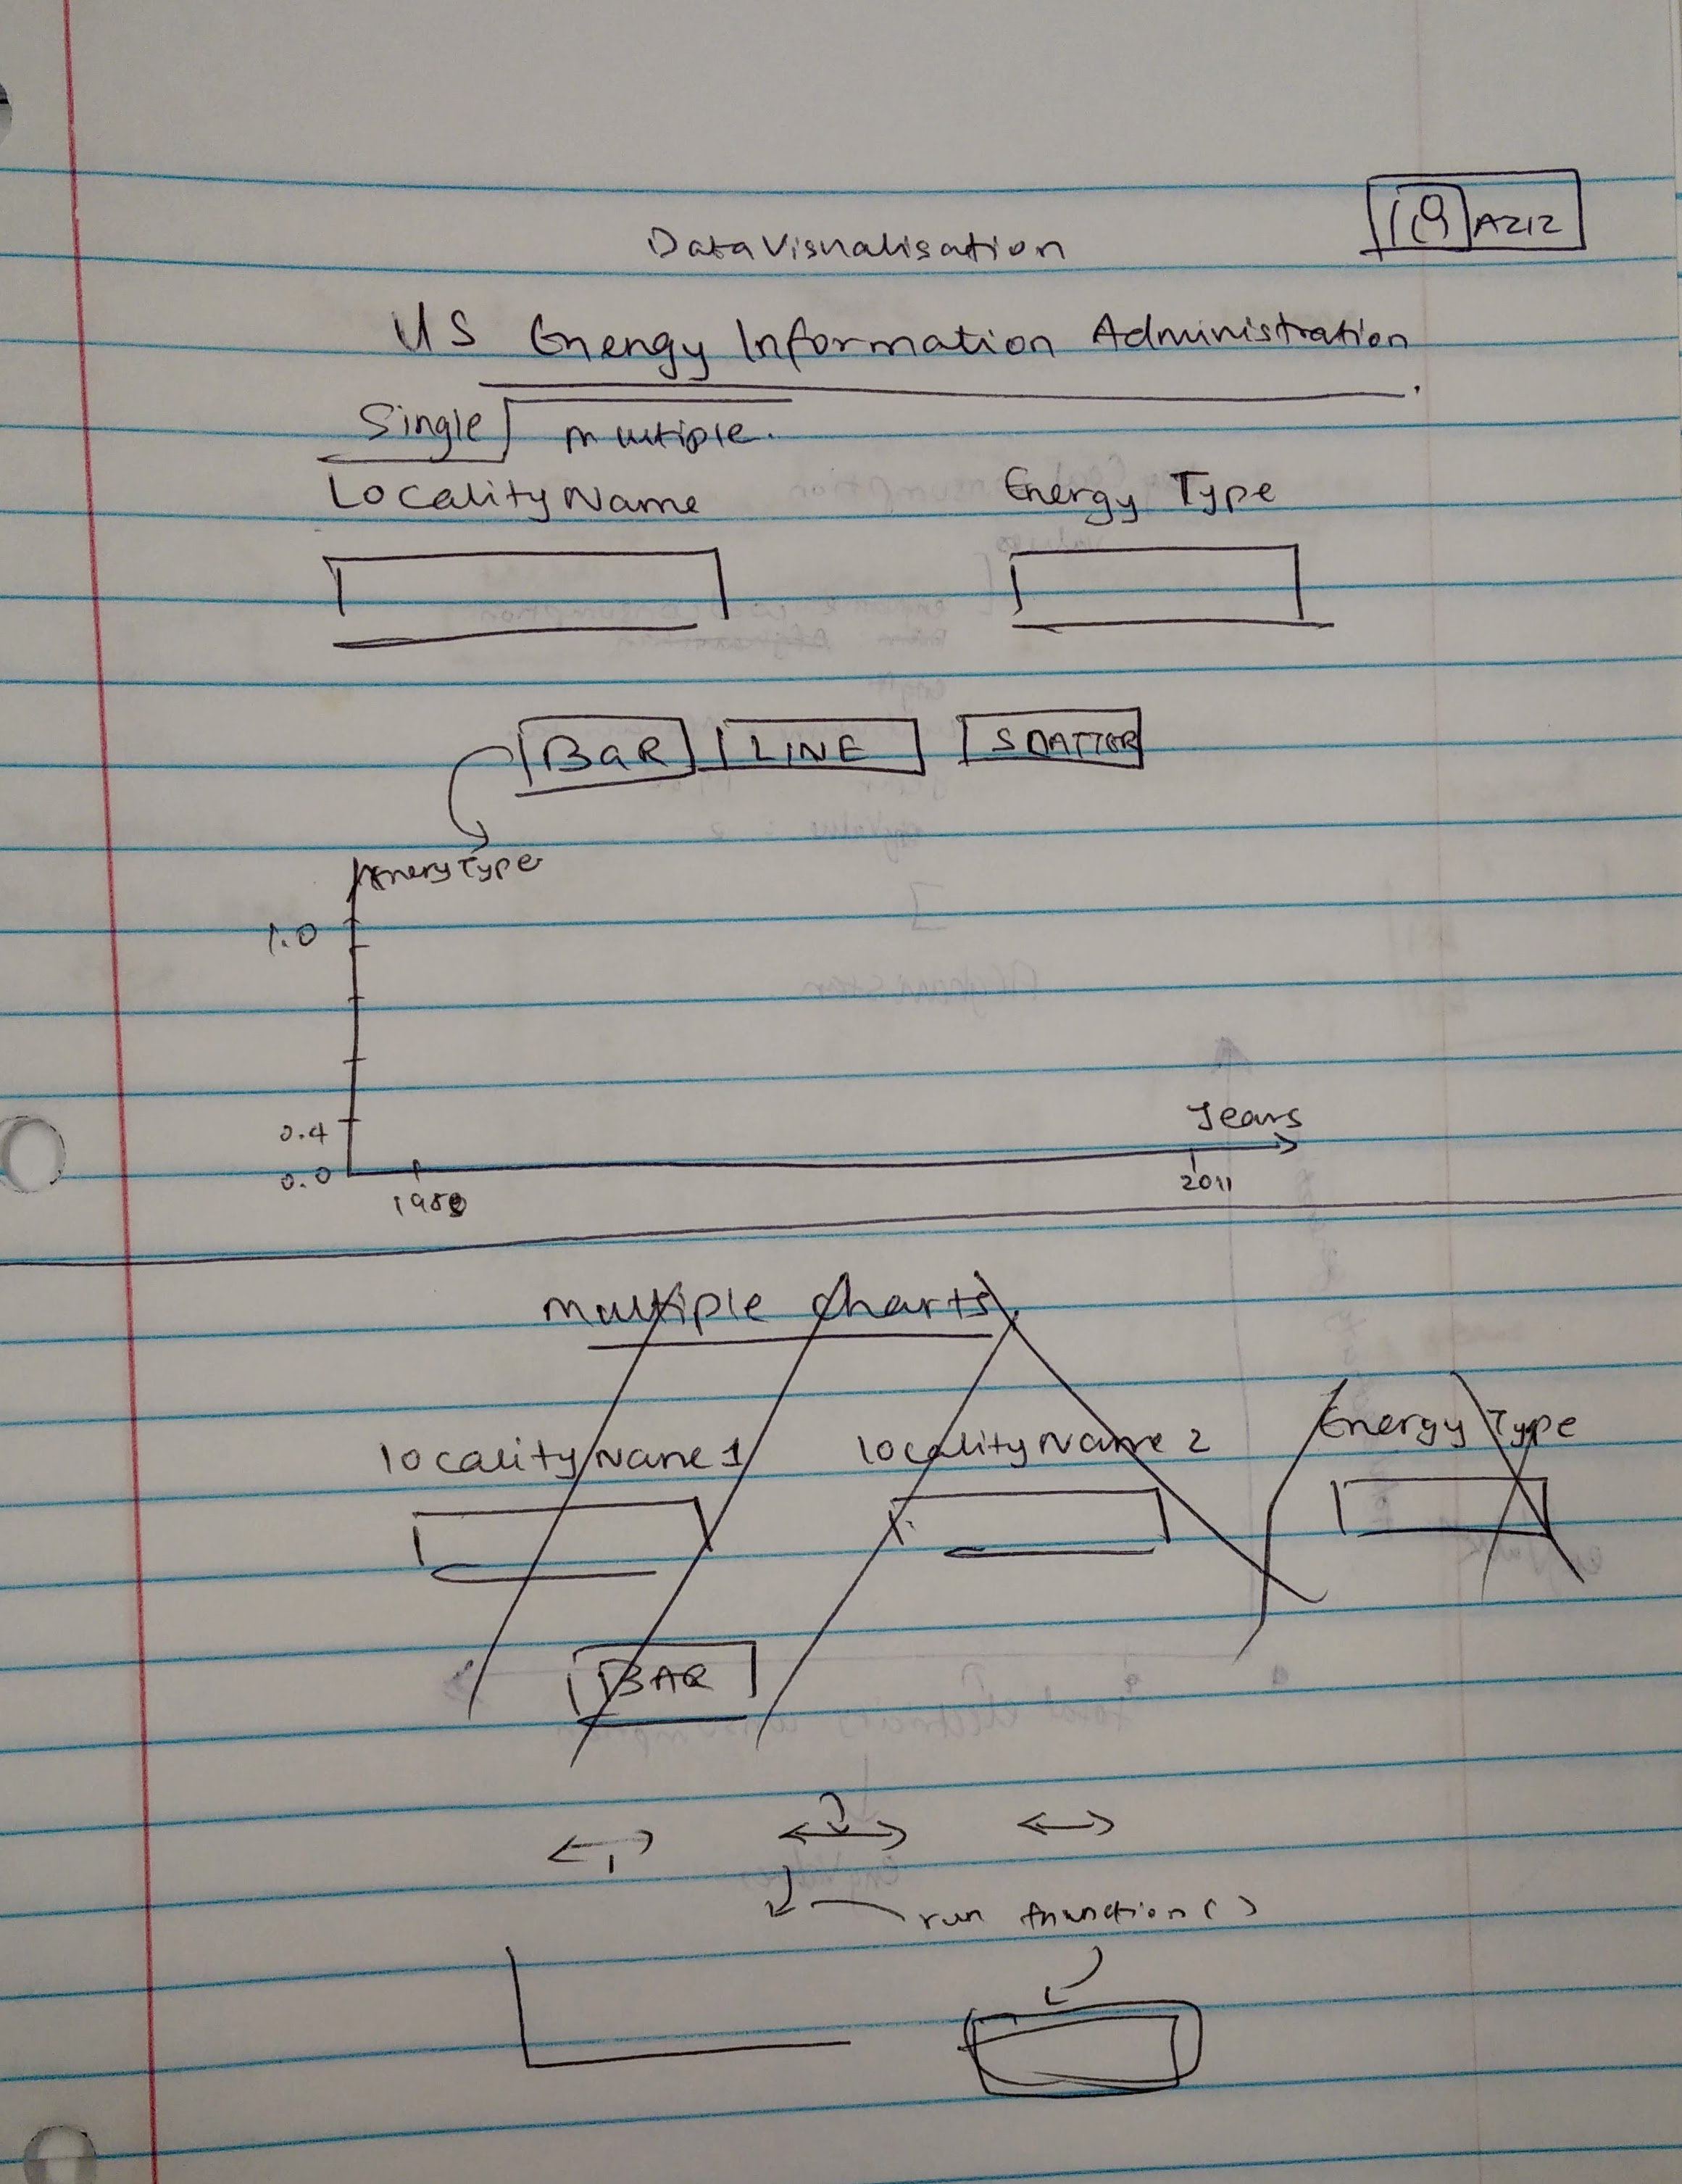 Data Visualisation
AZIZ
US Energy Information Administration
Single
multiple.
Locality Name
Energy Type
BaR
LINE
SCATTER
Enery Type
1.0
0.4
0.0
Years
1980
2011
multiple charts
locality Name 1
locality Name 2
Energy Type
BAR
1
2
run function()